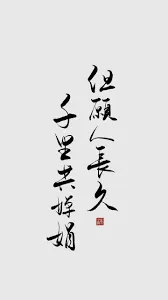 但願人長久
千里共婵娟